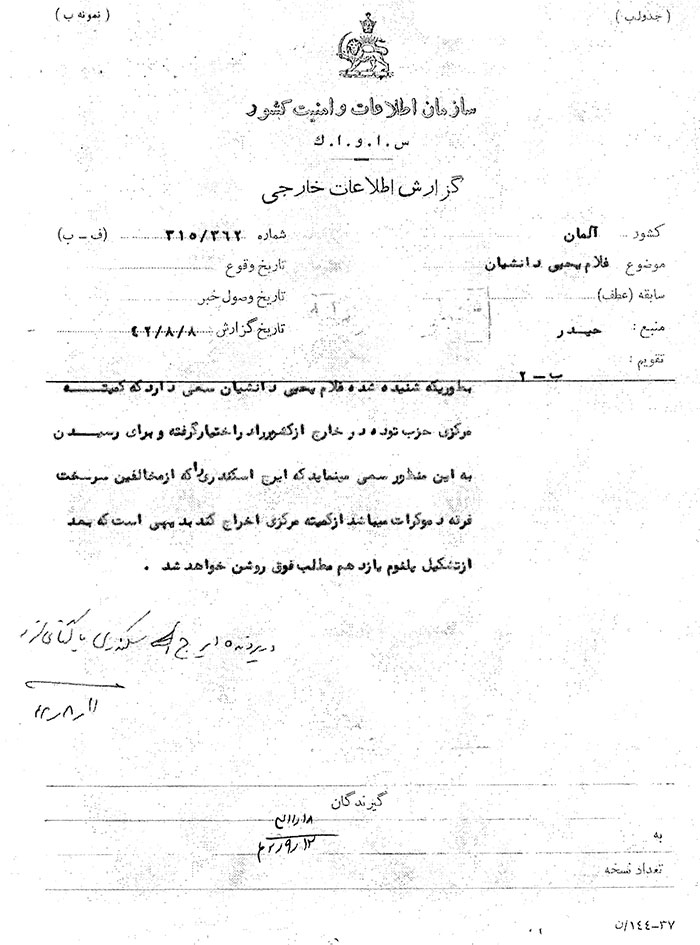 (جدول ب)
(نمونه ب)
سازمان اطلاعات و امنیت کشور
س.ا.و.ا.ك
گزارش اطلاعات خارجی
کشور آلمان
شماره ۳۱۵/۳۶۲ (ف-ب)
موضوع غلام یحیی دانشیان
تاریخ وقوع
سابقه (عطف)
تاریخ وصول خبر
منبع: حیدر
تاریخ گزارش ۴۲/۸/۸
تقویم: ب-۲
بطوریکه شنیده شده غلام یحیی دانشیان سعی دارد که کمیته
مرکزی حزب توده در خارج از کشور را در اختیار گرفته و برای رسیدن
به این منظور سعی مینماید که ایرج اسکندری را که از مخالفین سرسخت
فرقه دموکرات میباشد از کمیته مرکزی اخراج کند بدیهی است که بعد
از تشکیل پلنوم یازدهم مطلب فوق روشن خواهد شد.
در پرونده ایرج اسکندری بایگانی شود
گیرندگان
به
تعداد نسخه
۳۷-۱۴۴/ن